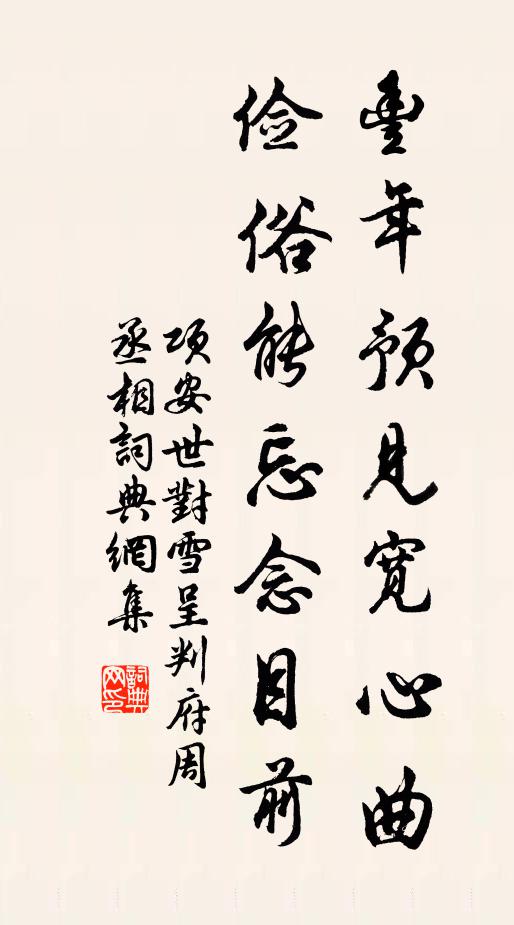 豐年预見寬心曲
俭俗能忘念目前
項安世對雪呈判府周
丞相詞典網集
詞典網印